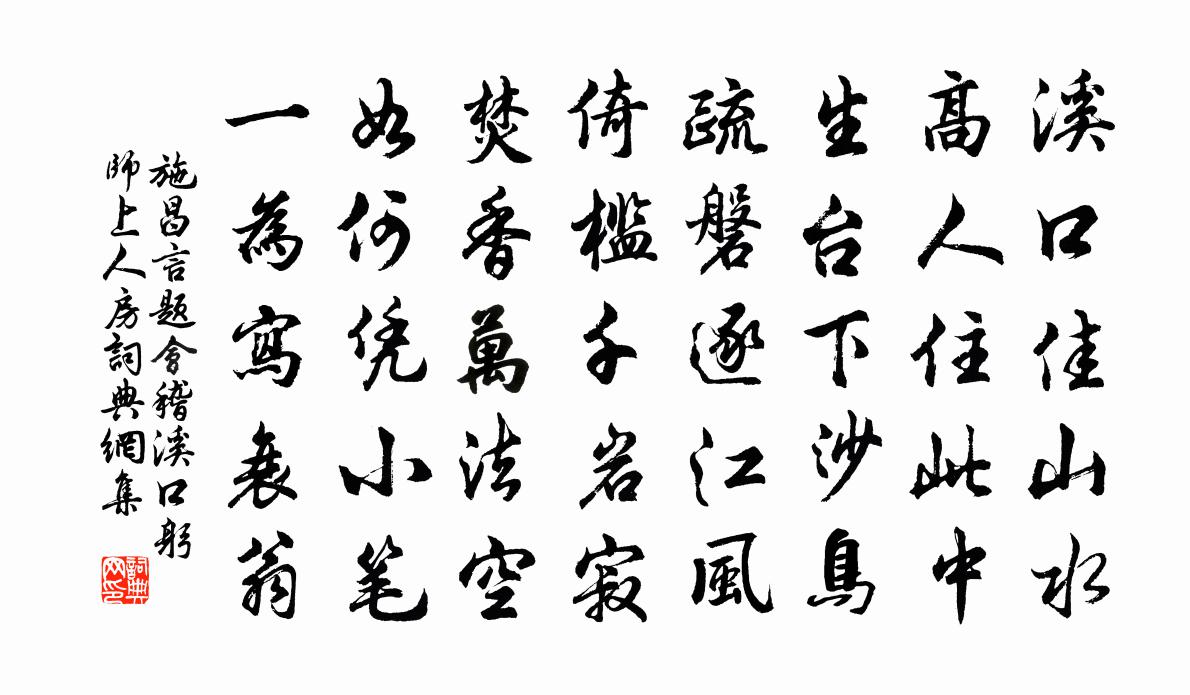 溪口佳山水
高人住此中
生台下沙鳥
疏磬逐江風
倚檻千岩寂
焚香萬法空
如何凭小笔
一為寫衰翁
施昌言题會稽溪口躬
師上人房詞典網集
詞典网印